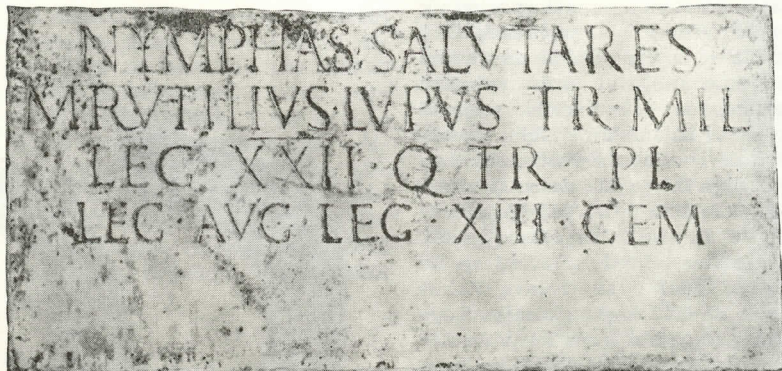 NYMPHAS SALVTARES
M RVTILIVS·LVPVS TR MIL
LEG XXII·Q TR PL
LEG AVG LEG·XIIII·GEM